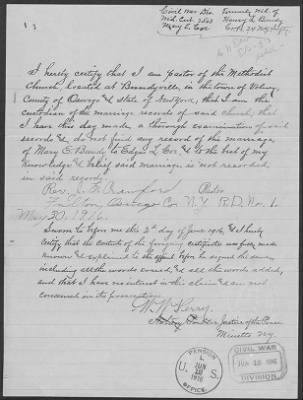 Civil War Div.
Wid. Ctf.
Mary E. Cox
formerly Wid. of
Henry L. Bundy
I hereby certify that I am pastor of the Methodist
Church, located at Bundyville, in the town of Volney
County of Oswego & state of New York, that I am the
custodian of the marriage records of said church; that
I have this day made, a thorough examination of said
records & do not find any record of the marriage
of Mary E. Bundy to Edgar L. Cox, & to the best of my
knowledge & belief said marriage is not recorded
in said records.
Rev. J. H. Crawford Pastor
Fulton, Oswego Co. N.Y. R.D. No. 1.
May 30, 1916.
Sworn to before me this 2nd day of June 1916, & I hereby
Certify that the contents of the foregoing certificate was fully made
known & explained to the affiant before he signed the same,
including all the words erased, & all the words added,
and that I have no interest in this claim & am not
concerned in its prosecution.
W. W. Perry
Justice of the Peace
Minetto N.Y.
PENSION
L
U. S.
JUN
1916
OFFICE.
CIVIL WAR
JUN 1916
DIVISION